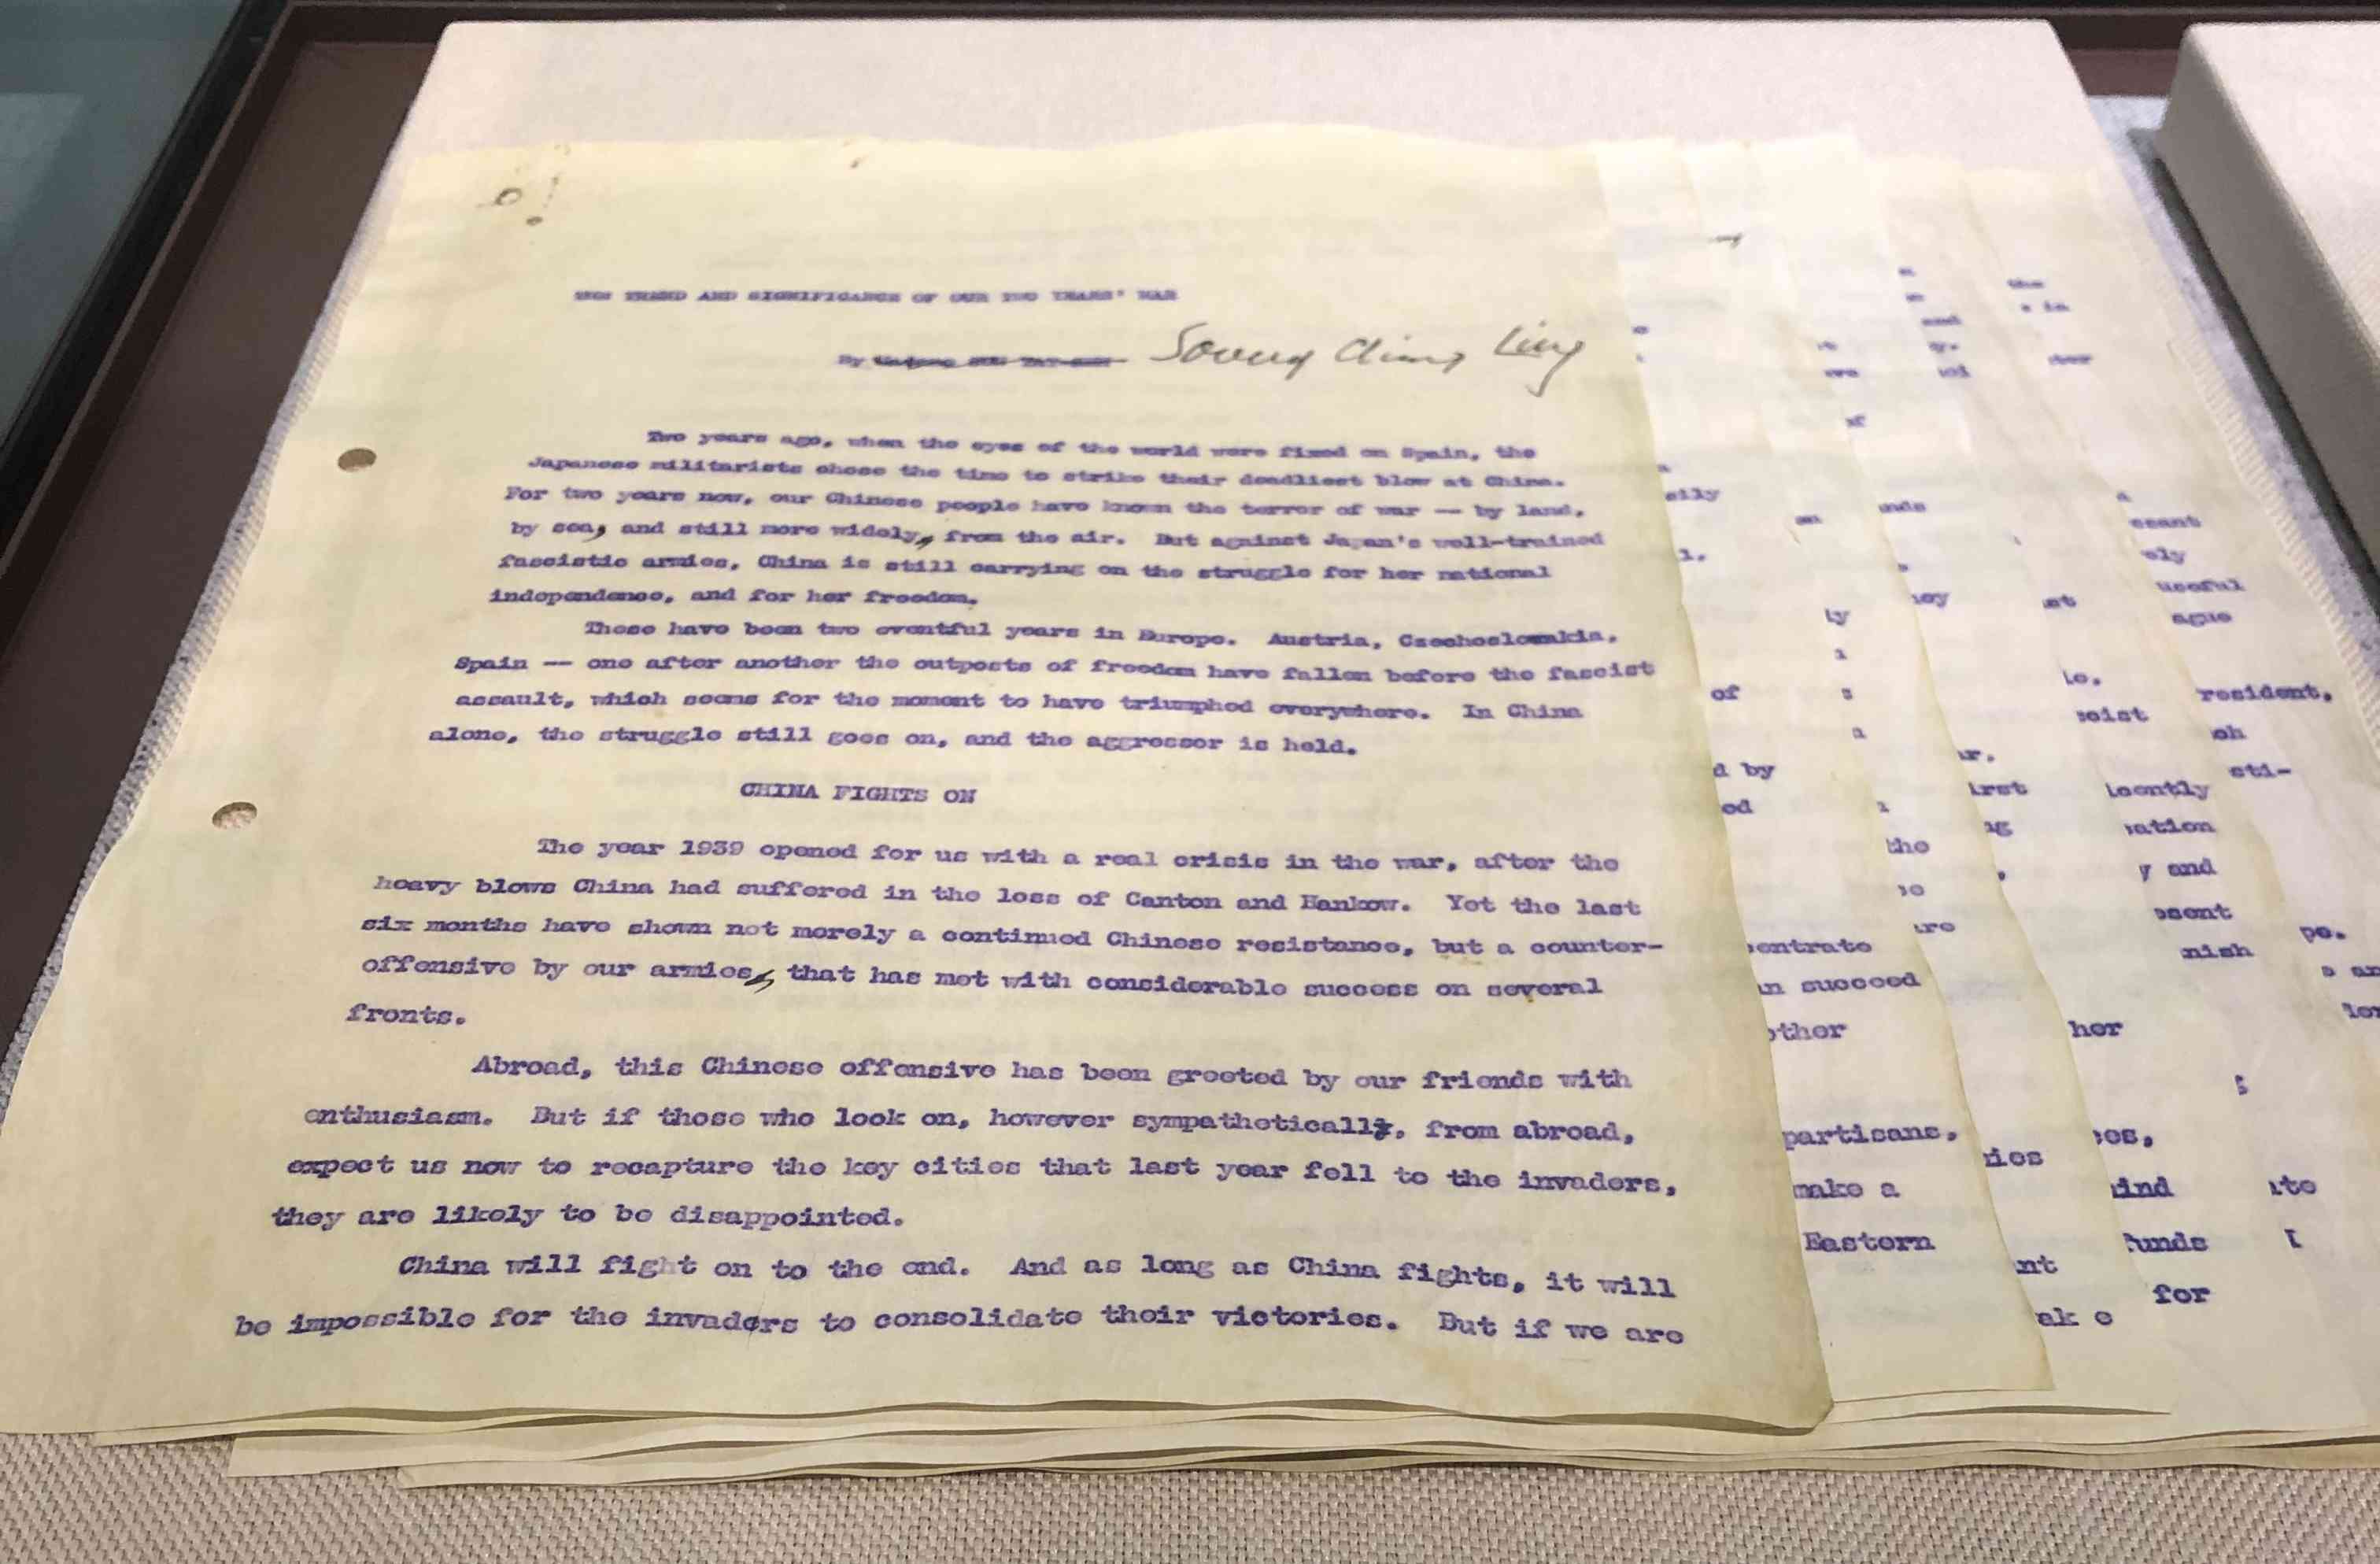 THE TREND AND SIGNIFICANCE OF OUR TWO YEARS' WAR
By Madame SUN YAT-SEN Soong Ching Ling
Two years ago, when the eyes of the world were fixed on Spain, the
Japanese militarists chose the time to strike their deadliest blow at China.
For two years now, our Chinese people have known the terror of war -- by land,
by sea, and still more widely, from the air. But against Japan's well-trained
fascistic armies, China is still carrying on the struggle for her national
independence, and for her freedom.
These have been two eventful years in Europe. Austria, Czechoslovakia,
Spain -- one after another the outposts of freedom have fallen before the fascist
assault, which seems for the moment to have triumphed everywhere. In China
alone, the struggle still goes on, and the aggressor is held.
CHINA FIGHTS ON
The year 1939 opened for us with a real crisis in the war, after the
heavy blows China had suffered in the loss of Canton and Hankow. Yet the last
six months have shown not merely a continued Chinese resistance, but a counter-
offensive by our armies, that has met with considerable success on several
fronts.
Abroad, this Chinese offensive has been greeted by our friends with
enthusiasm. But if those who look on, however sympathetically, from abroad,
expect us now to recapture the key cities that last year fell to the invaders,
they are likely to be disappointed.
China will fight on to the end. And as long as China fights, it will
be impossible for the invaders to consolidate their victories. But if we are
of
d by
ed
entrate
n succeed
other
partisans,
make a
Eastern
the
her
for
useful
resident,
y and